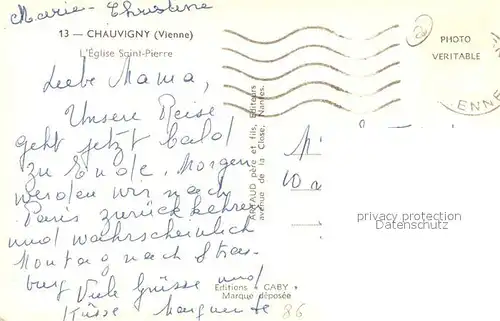 Marie-Christine
13 — CHAUVIGNY (Vienne)
L'Église Saint-Pierre
Liebe Mama,
Unsere Reise
geht jetzt bald
zu Ende. Morgen
werden wir nach
Paris zurückkehren
und wahrscheinlich
Montag nach Stras-
burg Viele Grüsse und
Küsse Marguerite
86
Editions "CABY"
Marque déposée
ARTAUD père et fils, Editeurs
avenue de la Close, Nantes.
PHOTO
VERITABLE
ENNE
privacy protection
Datenschutz